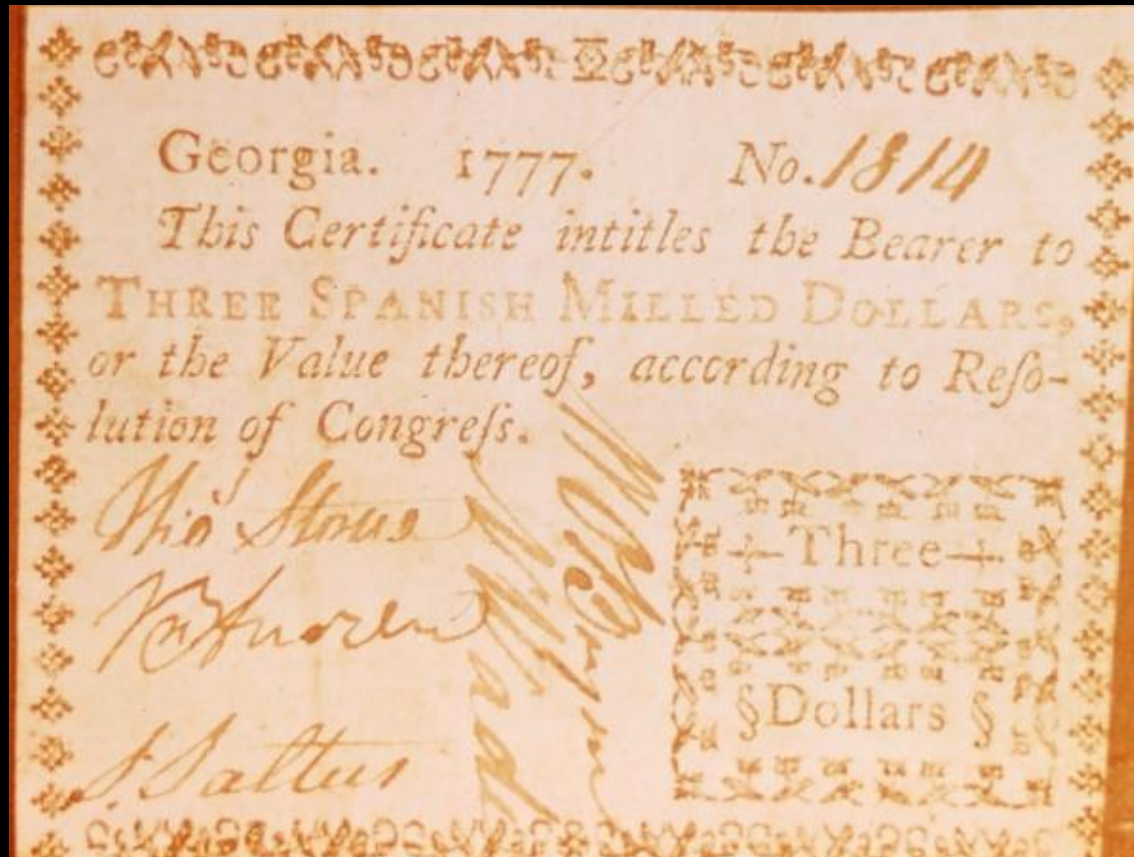 Georgia. 1777. No. 1814
This Certificate intitles the Bearer to
THREE SPANISH MILLED DOLLARS,
or the Value thereof, according to Reſo-
lution of Congreſs.
Thoˢ Stone
Three
Dollars
§Dollars §